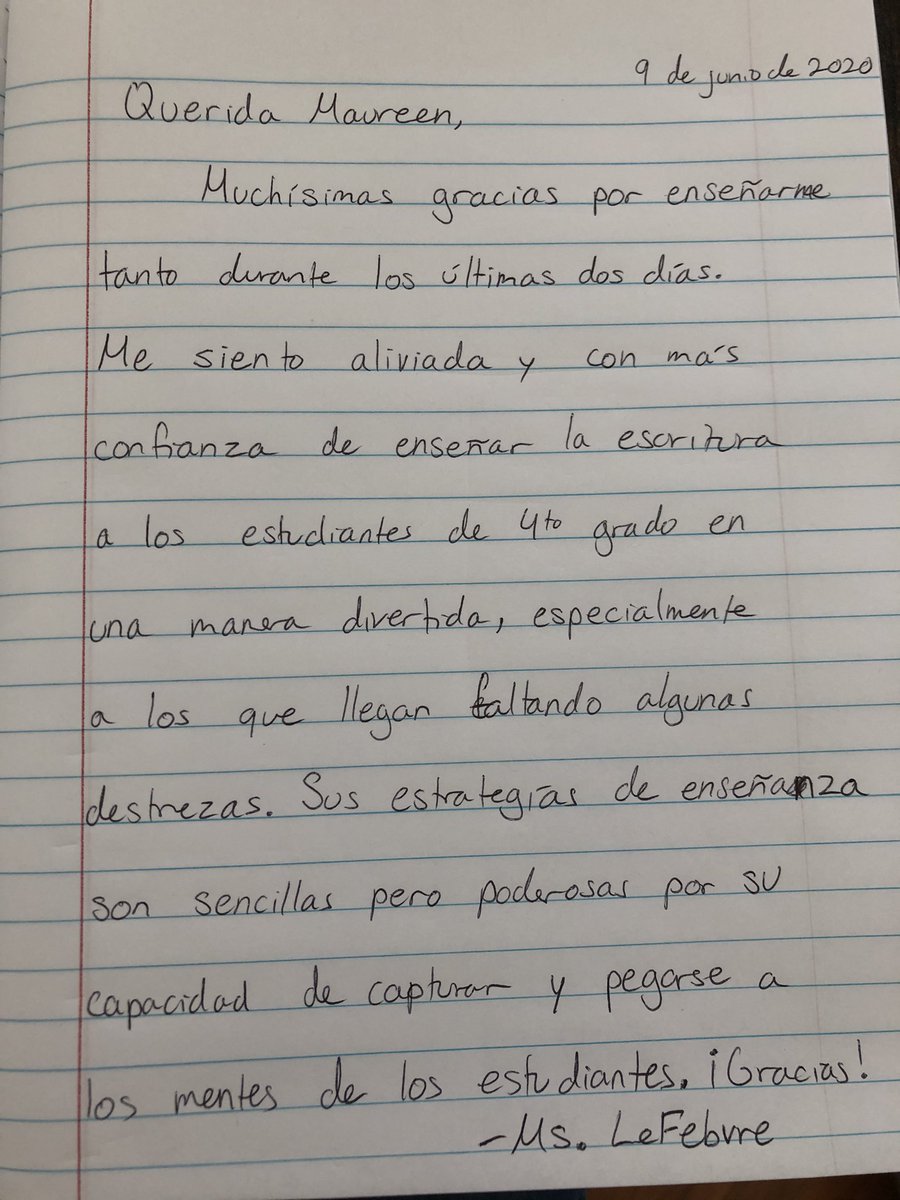 9 de junio de 2020
Querida Maureen,
Muchísimas gracias por enseñarme
tanto durante los últimas dos días.
Me siento aliviada y con más
confianza de enseñar la escritura
a los estudiantes de 4to grado en
una manera divertida, especialmente
a los que llegan faltando algunas
destrezas. Sus estrategías de enseñanza
son sencillas pero poderosas por su
capacidad de capturar y pegarse a
los mentes de los estudiantes. ¡Gracias!
-Ms. LeFebvre